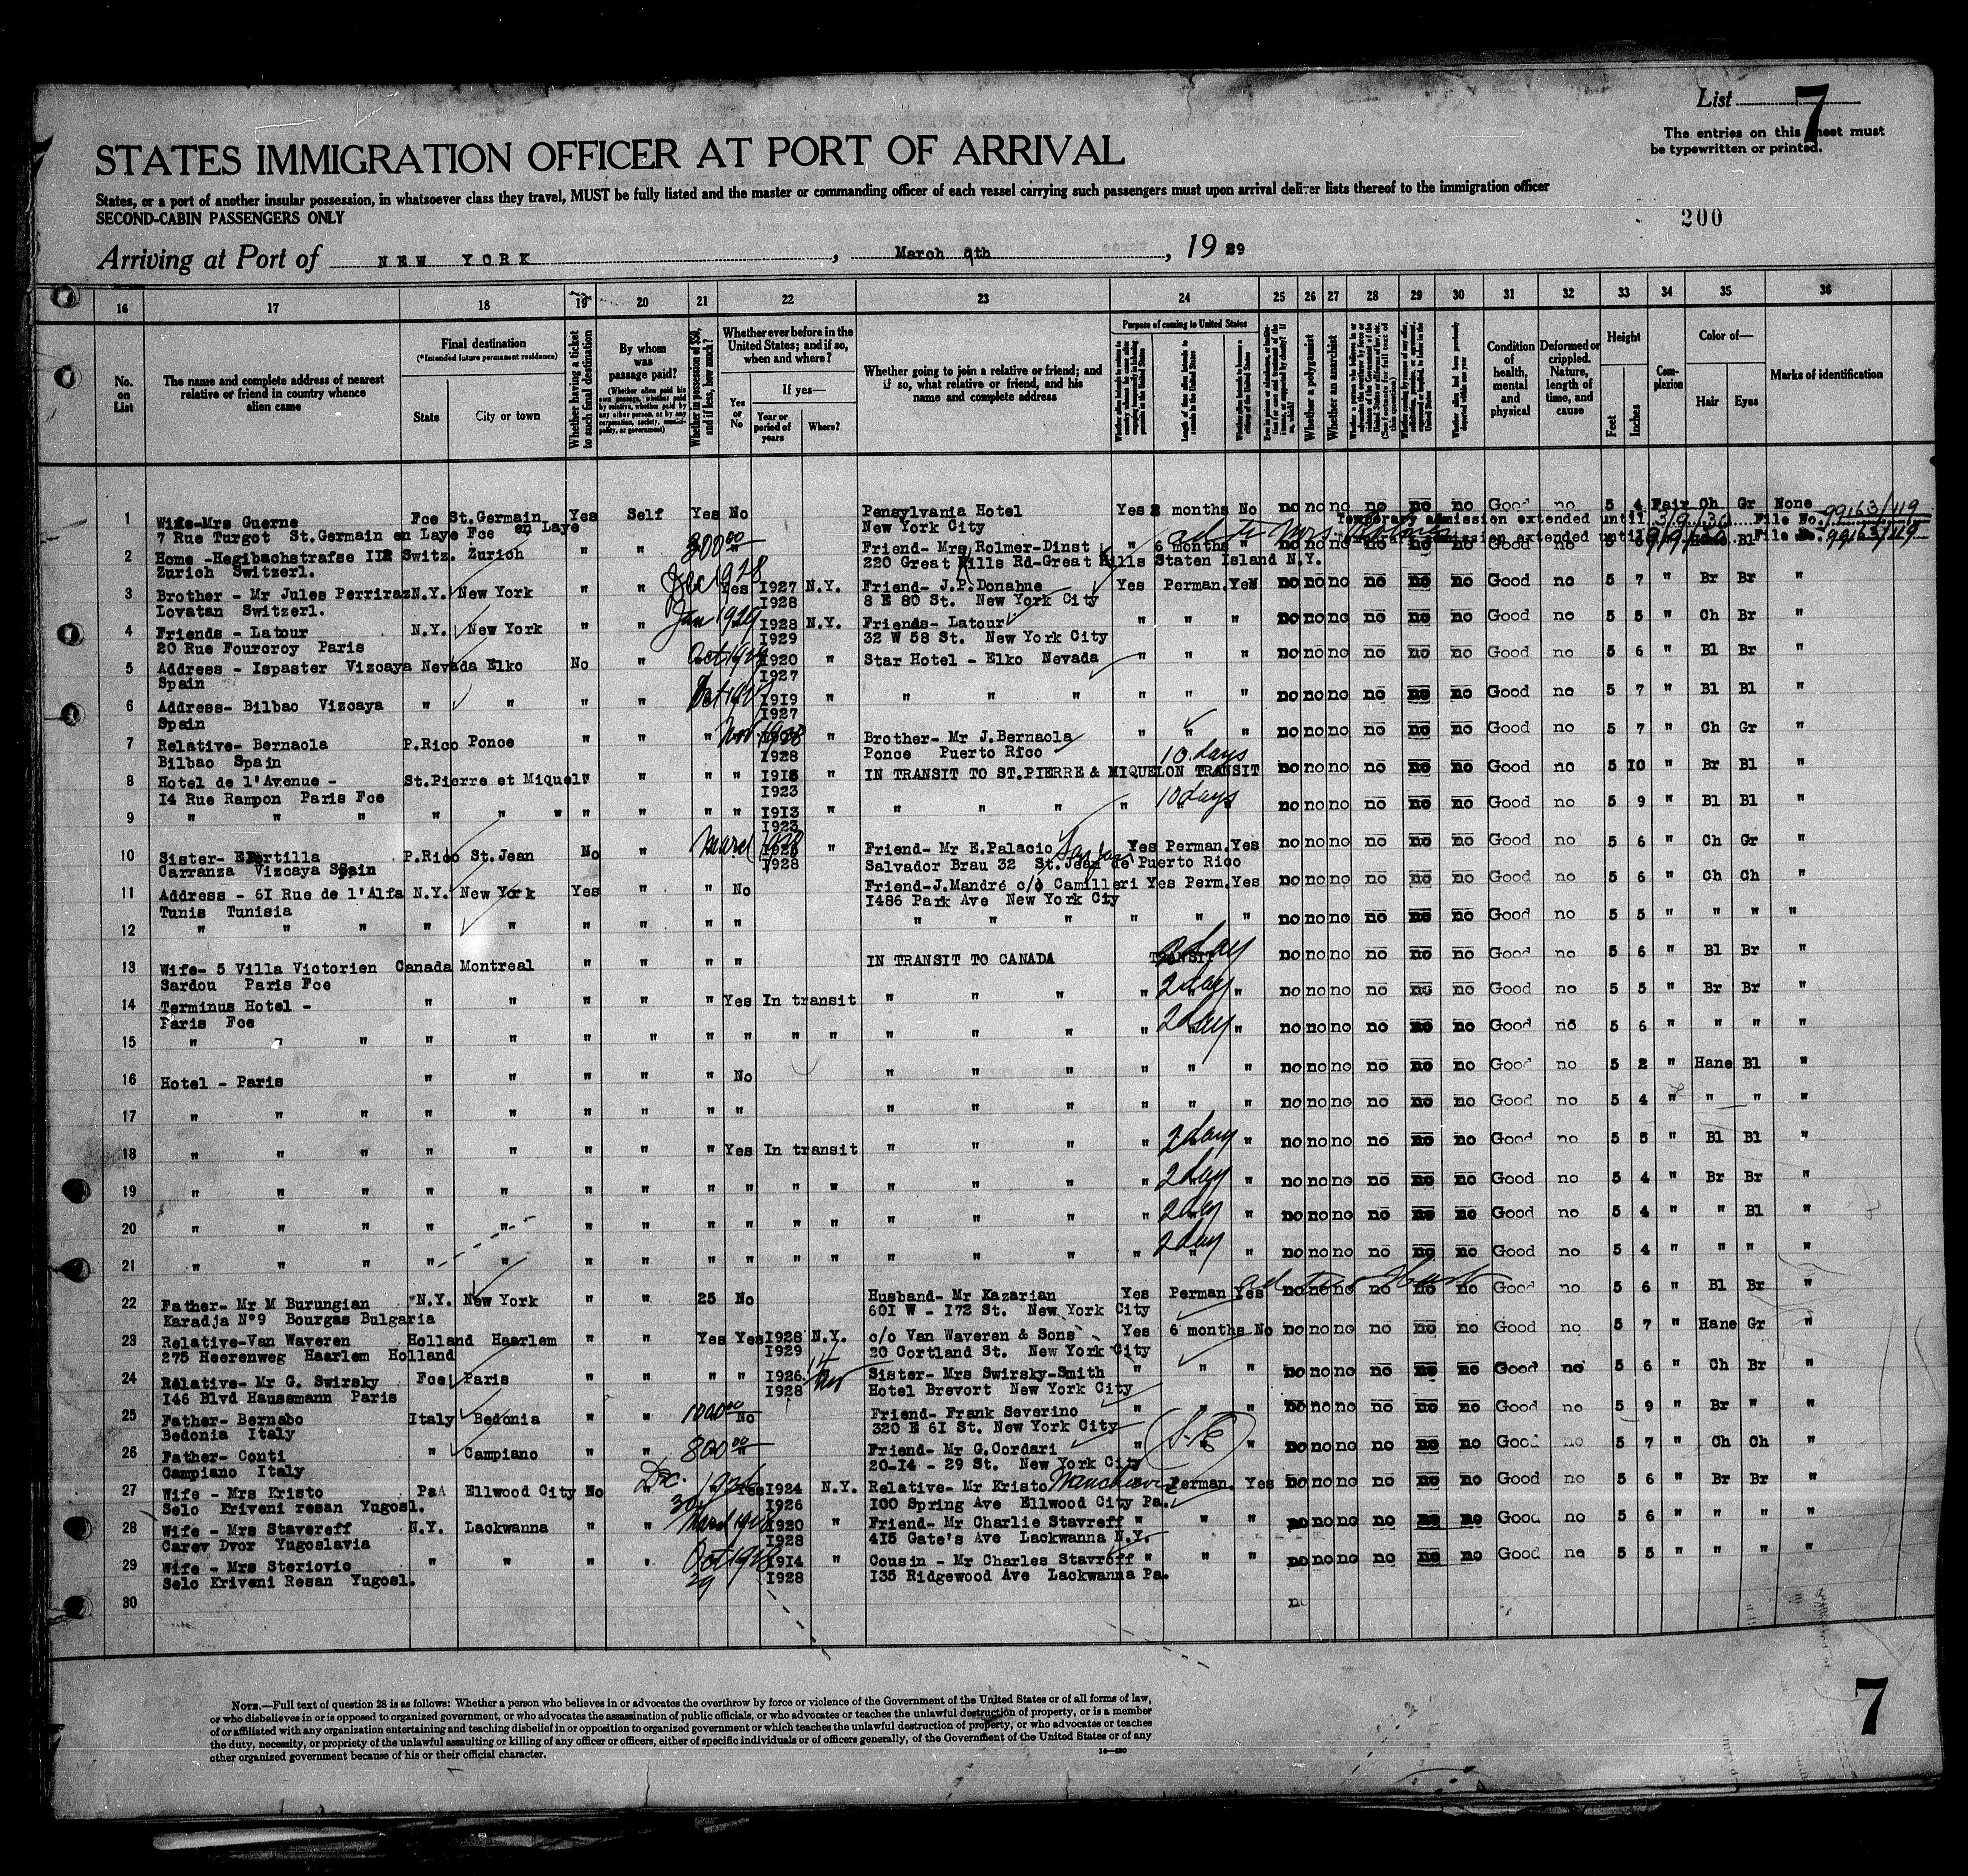 List 7
The entries on this sheet must
be typewritten or printed.
STATES IMMIGRATION OFFICER AT PORT OF ARRIVAL
States, or a port of another insular possession, in whatsoever class they travel, MUST be fully listed and the master or commanding officer of each vessel carrying such passengers must upon arrival deliver lists thereof to the immigration officer
SECOND-CABIN PASSENGERS ONLY
200
Arriving at Port of NEW YORK, March 8th, 1929
16 17 18 19 20 21 22 23 24 25 26 27 28 29 30 31 32 33 34 35 36
No. on List
The name and complete address of nearest relative or friend in country whence alien came
Final destination
(*Intended future permanent residence)
State
City or town
Whether having a ticket to such final destination
By whom was passage paid?
(Whether alien paid his own passage, whether paid by relative, whether paid by any other person, or by any corporation, society, municipality, or government)
Whether in possession of $50, and if less, how much?
Whether ever before in the United States; and if so, when and where?
Yes or No
If yes—
Year or period of years
Where?
Whether going to join a relative or friend; and if so, what relative or friend, and his name and complete address
Purpose of coming to United States
Length of time alien intends to remain in the United States
Whether alien intends to become a citizen of the United States
Whether a polygamist
Whether an anarchist
Whether alien had been previously deported within one year
Condition of health, mental and physical
Deformed or crippled. Nature, length of time, and cause
Height
Feet
Inches
Complexion
Color of—
Hair
Eyes
Marks of identification
1 Wife-Mrs Guerne Fce St.Germain Yes Self Yes No Pensylvania Hotel Yes 2 months No no no no no no no Good no 5 4 Fair Ch Gr None
7 Rue Turgot St.Germain en Laye Fce en Laye New York City Temporary admission extended until 3/9/30 File No. 99163/119
2 Home -Hegibachstrafse II2 Switz. Zurich " " 300 00 " Friend- Mrs Rolmer-Dinst " 6 months " no no no no no no Good no 5 Bl "
Zurich Switzerl. 220 Great Kills Rd-Great Kills Staten Island N.Y.
3 Brother - Mr Jules Perriraz N.Y. New York " " Dec 1928 Yes I927 N.Y. Friend- J.P.Donahue Yes Perman. Yes no no no no no no Good no 5 7 " Br Br "
Lovatan Switzerl. I928 8 E 80 St. New York City
4 Friends - Latour N.Y. New York " " Jan 1929 I928 N.Y. Friends- Latour " " " no no no no no no Good no 5 5 " Ch Br "
20 Rue Fourcroy Paris I929 32 W 58 St. New York City
5 Address - Ispaster Vizcaya Nevada Elko No " Oct I920 " Star Hotel - Elko Nevada " " " no no no no no no Good no 5 6 " Bl Br "
Spain I927
6 Address- Bilbao Vizcaya " " " " Oct I9I9 " " " " " " " no no no no no no Good no 5 7 " Bl Bl "
Spain I927
7 Relative- Bernaola P.Rico Ponce " " " Nov. 1928 " Brother- Mr J.Bernaola " " " no no no no no no Good no 5 7 " Ch Gr "
Bilbao Spain I928 Ponce Puerto Rico 10 days
8 Hotel de l'Avenue - St.Pierre et Miquel " " " " I9I5 " IN TRANSIT TO ST.PIERRE & MIQUELON TRANSIT no no no no no no Good no 5 I0 " Br Bl "
I4 Rue Rampon Paris Fce I923 10 days
9 " " " " " " " " " " I9I3 " " " " " " no no no no no no Good no 5 9 " Bl Bl "
I923
10 Sister- Portilla P.Rico St.Jean No " March 1928 " Friend- Mr E.Palacio Yes Perman. Yes no no no no no no Good no 5 6 " Ch Gr "
Carranza Vizcaya Spain I928 Salvador Brau 32 St.Jean de Puerto Rico
11 Address - 6I Rue de l'Alfa N.Y. New York Yes " " No Friend-J.Mandré c/o Camilleri Yes Perm. Yes no no no no no no Good no 5 6 " Ch Ch "
Tunis Tunisia I486 Park Ave New York City
12 " " " " " " " " " " " " " " " no no no no no no Good no 5 5 " " " "
13 Wife- 5 Villa Victorien Canada Montreal " " " " IN TRANSIT TO CANADA TRANSIT 2 day no no no no no no Good no 5 6 " Bl Br "
Sardou Paris Fce
14 Terminus Hotel - " " " " " Yes In transit " " " " 2 day " no no no no no no Good no 5 5 " Br Br "
Paris Fce
15 " " " " " " " " " " " " " " " 2 day " no no no no no no Good no 5 6 " " " "
16 Hotel - Paris " " " " " No " " " " " " no no no no no no Good no 5 2 " Hane Bl "
17 " " " " " " " " " " " " " " " no no no no no no Good no 5 4 " " " "
18 " " " " " " " " Yes In transit " " " " 2 day " no no no no no no Good no 5 5 " Bl Bl "
19 " " " " " " " " " " " " " " " 2 day " no no no no no no Good no 5 4 " Br Br "
20 " " " " " " " " " " " " " " " 2 day " no no no no no no Good no 5 4 " " Bl "
21 " " " " " " " " " " " " " " " 2 day " no no no no no no Good no 5 4 " " " "
22 Father- Mr M Burungian N.Y. New York " " 25 No Husband- Mr Kazarian Yes Perman Yes no no no no no no Good no 5 6 " Bl Br "
Karadja N°9 Bourgas Bulgaria 60I W - I72 St. New York City
23 Relative-Van Waveren Holland Haarlem " " Yes Yes I928 N.Y. c/o Van Waveren & Sons Yes 6 months No no no no no no no Good no 5 7 " Hane Gr "
275 Heerenweg Haarlem Holland I929 20 Cortland St. New York City
24 Relative- Mr G. Swirsky Fce Paris " " " " I926 Sister- Mrs Swirsky-Smith " " " no no no no no no Good no 5 6 " Ch Br "
I46 Blvd Haussmann Paris I928 Hotel Brevort New York City
25 Father- Bernabo Italy Bedonia " " 1000 00 No Friend- Frank Severino " " " no no no no no no Good no 5 9 " Br " "
Bedonia Italy 320 E 6I St. New York City
26 Father- Conti " Campiano " " 800 00 Friend- Mr G.Cordari " " " no no no no no no Good no 5 7 " Ch Ch "
Campiano Italy 20-I4 - 29 St. New York City
27 Wife - Mrs Kristo Pa Ellwood City No " Dec. Yes I924 N.Y. Relative- Mr Kristo Perman. Yes no no no no no no Good no 5 6 " Br Br "
Selo Kriveni resan Yugosl. 30 I926 I00 Spring Ave Ellwood City Pa.
28 Wife - Mrs Stavereff N.Y. Lackwanna " " March I920 " Friend- Mr Charlie Stavreff " " " no no no no no no Good no 5 6 " " " "
Carev Dvor Yugoslavia I928 4I5 Gate's Ave Lackwanna N.Y.
29 Wife - Mrs Steriovic " " " " Oct 1928 I9I4 " Cousin - Mr Charles Stavroff " " " no no no no no no Good no 5 5 " " " "
Selo Kriveni Resan Yugosl. 29 I928 I35 Ridgewood Ave Lackwanna Pa.
30
NOTE.—Full text of question 28 is as follows: Whether a person who believes in or advocates the overthrow by force or violence of the Government of the United States or of all forms of law,
or who disbelieves in or is opposed to organized government, or who advocates the assassination of public officials, or who advocates or teaches the unlawful destruction of property, or is a member
of or affiliated with any organization entertaining and teaching disbelief in or opposition to organized government or which teaches the unlawful destruction of property, or who advocates or teaches
the duty, necessity, or propriety of the unlawful assaulting or killing of any officer or officers, either of specific individuals or of officers generally, of the Government of the United States or of any
other organized government because of his or their official character.
7